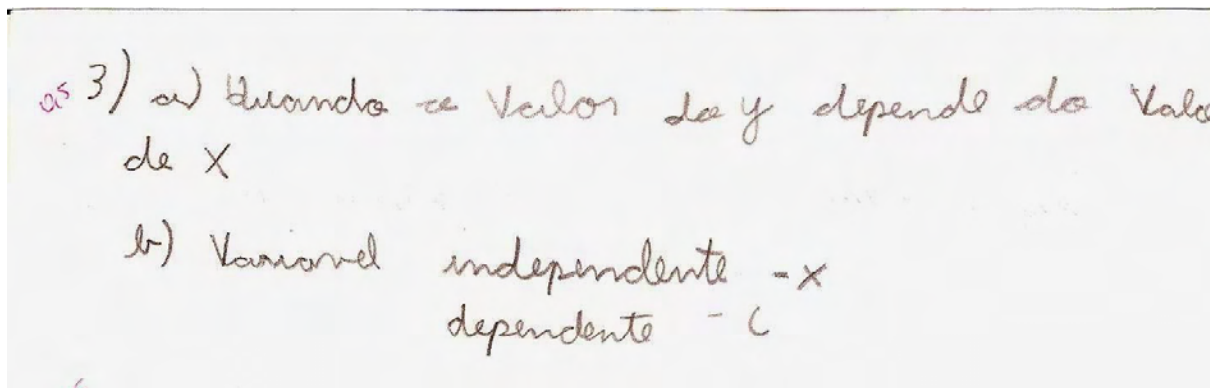 0,5 3) a) Quando o Valor do y depende do Valo
de X
b) Variavel independente - x
dependente - C